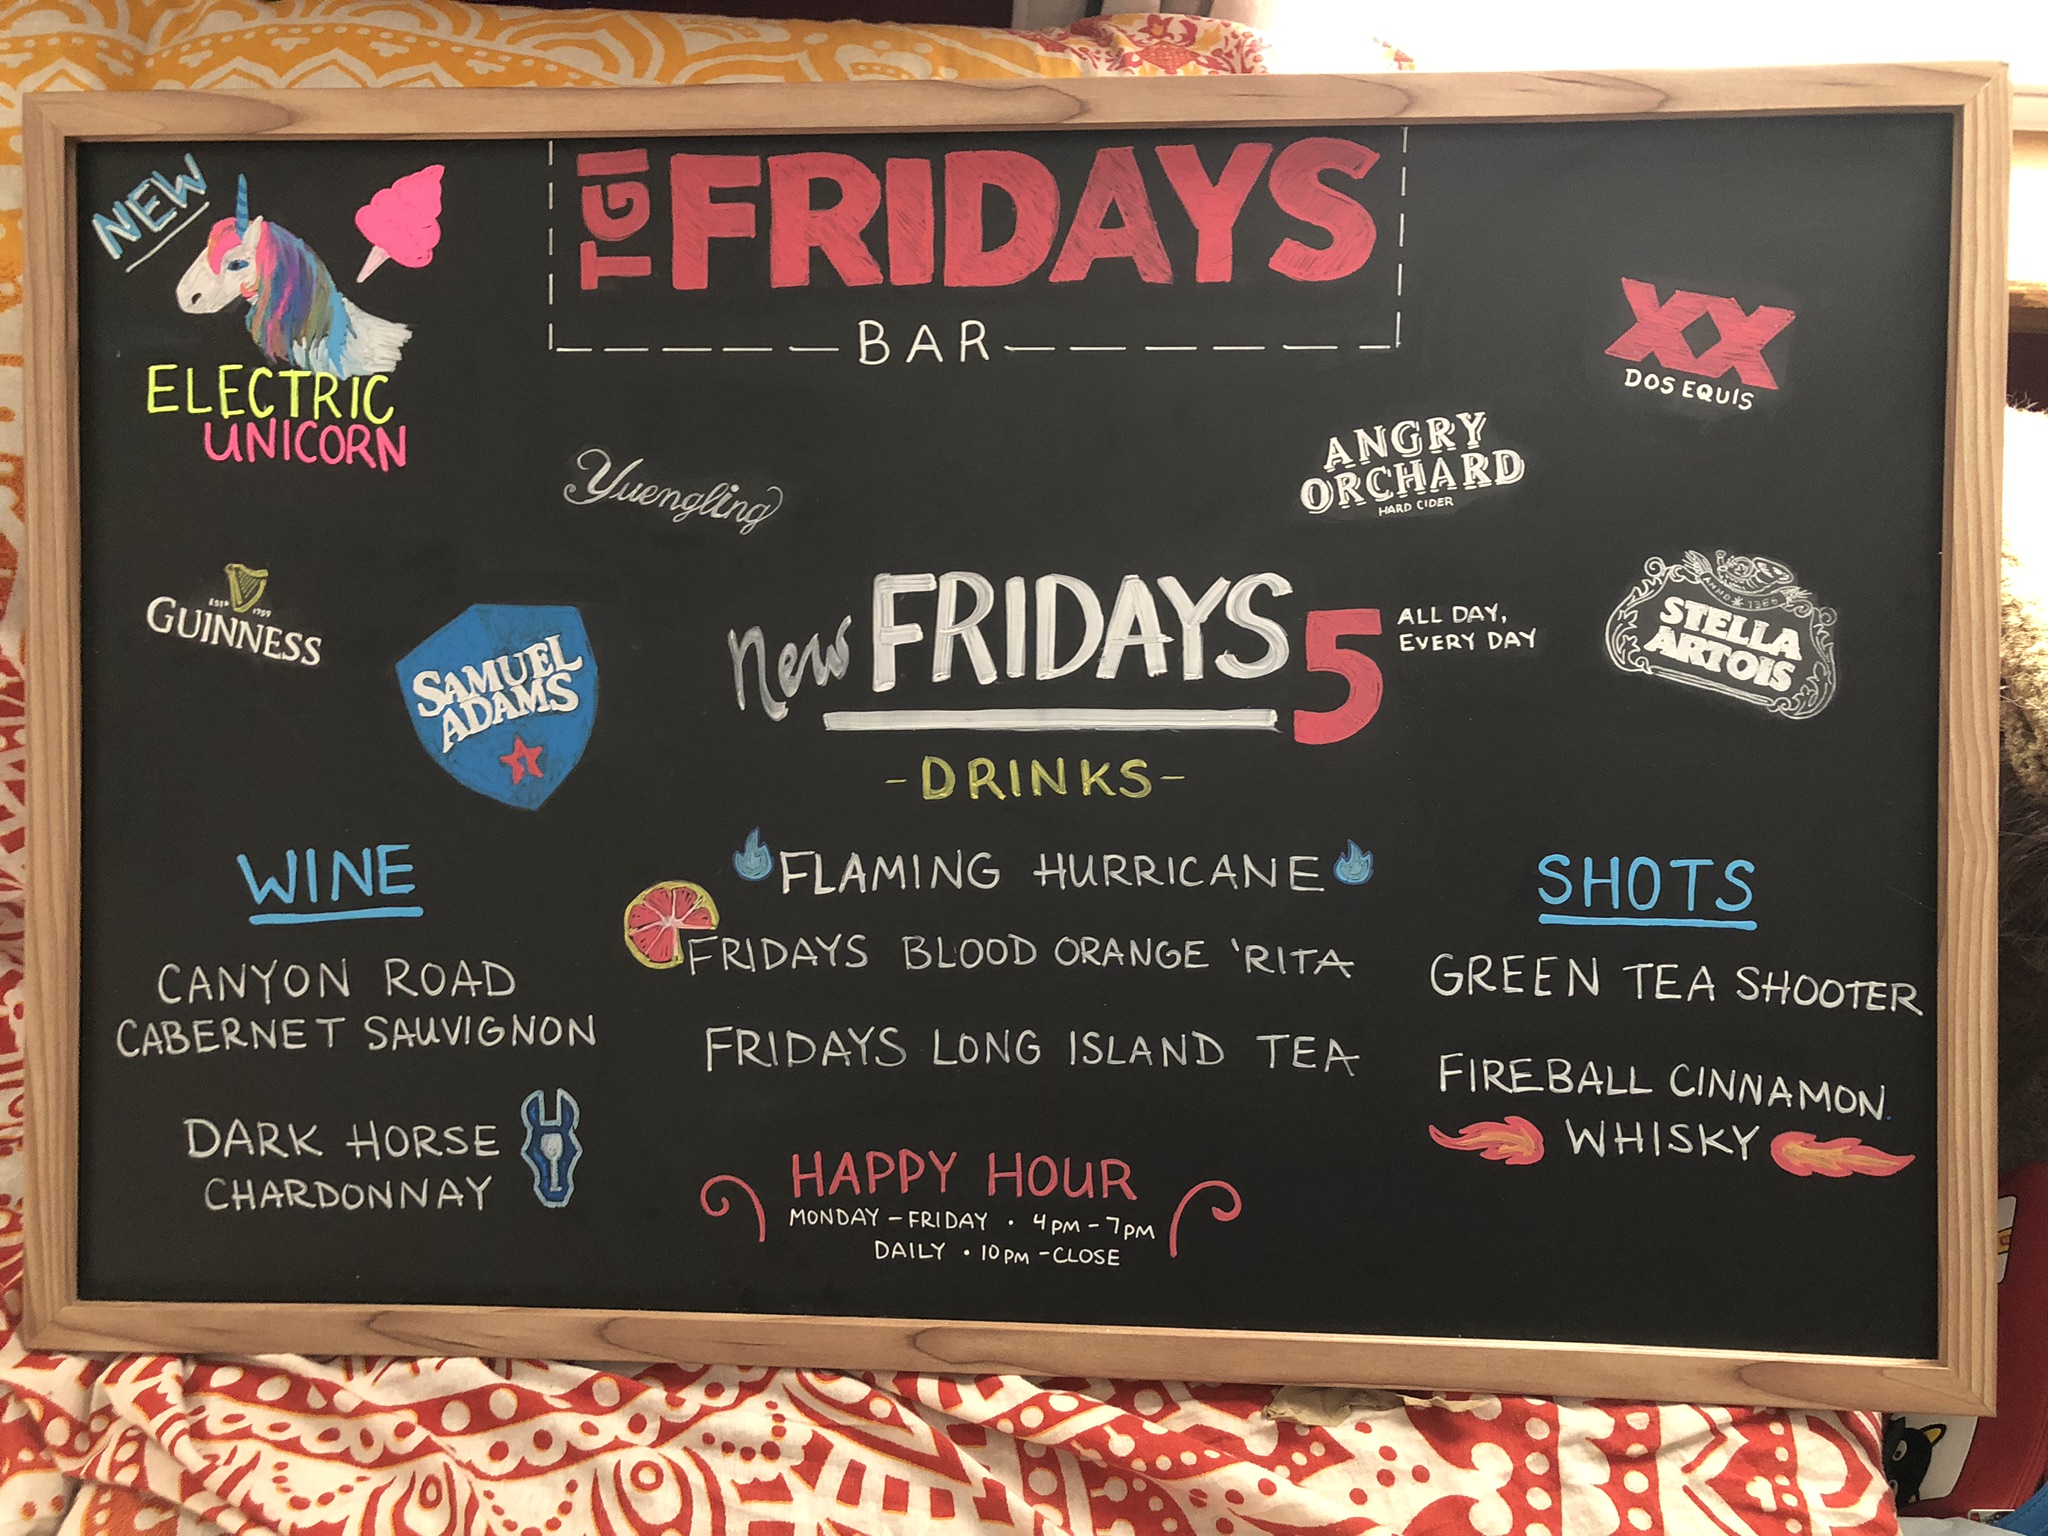 NEW
ELECTRIC
UNICORN
TGI FRIDAYS
BAR
XX
DOS EQUIS
Yuengling
ANGRY
ORCHARD
HARD CIDER
ESTD 1759
GUINNESS
SAMUEL
ADAMS
New FRIDAYS 5
ALL DAY,
EVERY DAY
ANNO 1366
STELLA
ARTOIS
-DRINKS-
FLAMING HURRICANE
FRIDAYS BLOOD ORANGE 'RITA
FRIDAYS LONG ISLAND TEA
WINE
CANYON ROAD
CABERNET SAUVIGNON
DARK HORSE
CHARDONNAY
SHOTS
GREEN TEA SHOOTER
FIREBALL CINNAMON
WHISKY
HAPPY HOUR
MONDAY – FRIDAY • 4PM – 7PM
DAILY • 10PM – CLOSE